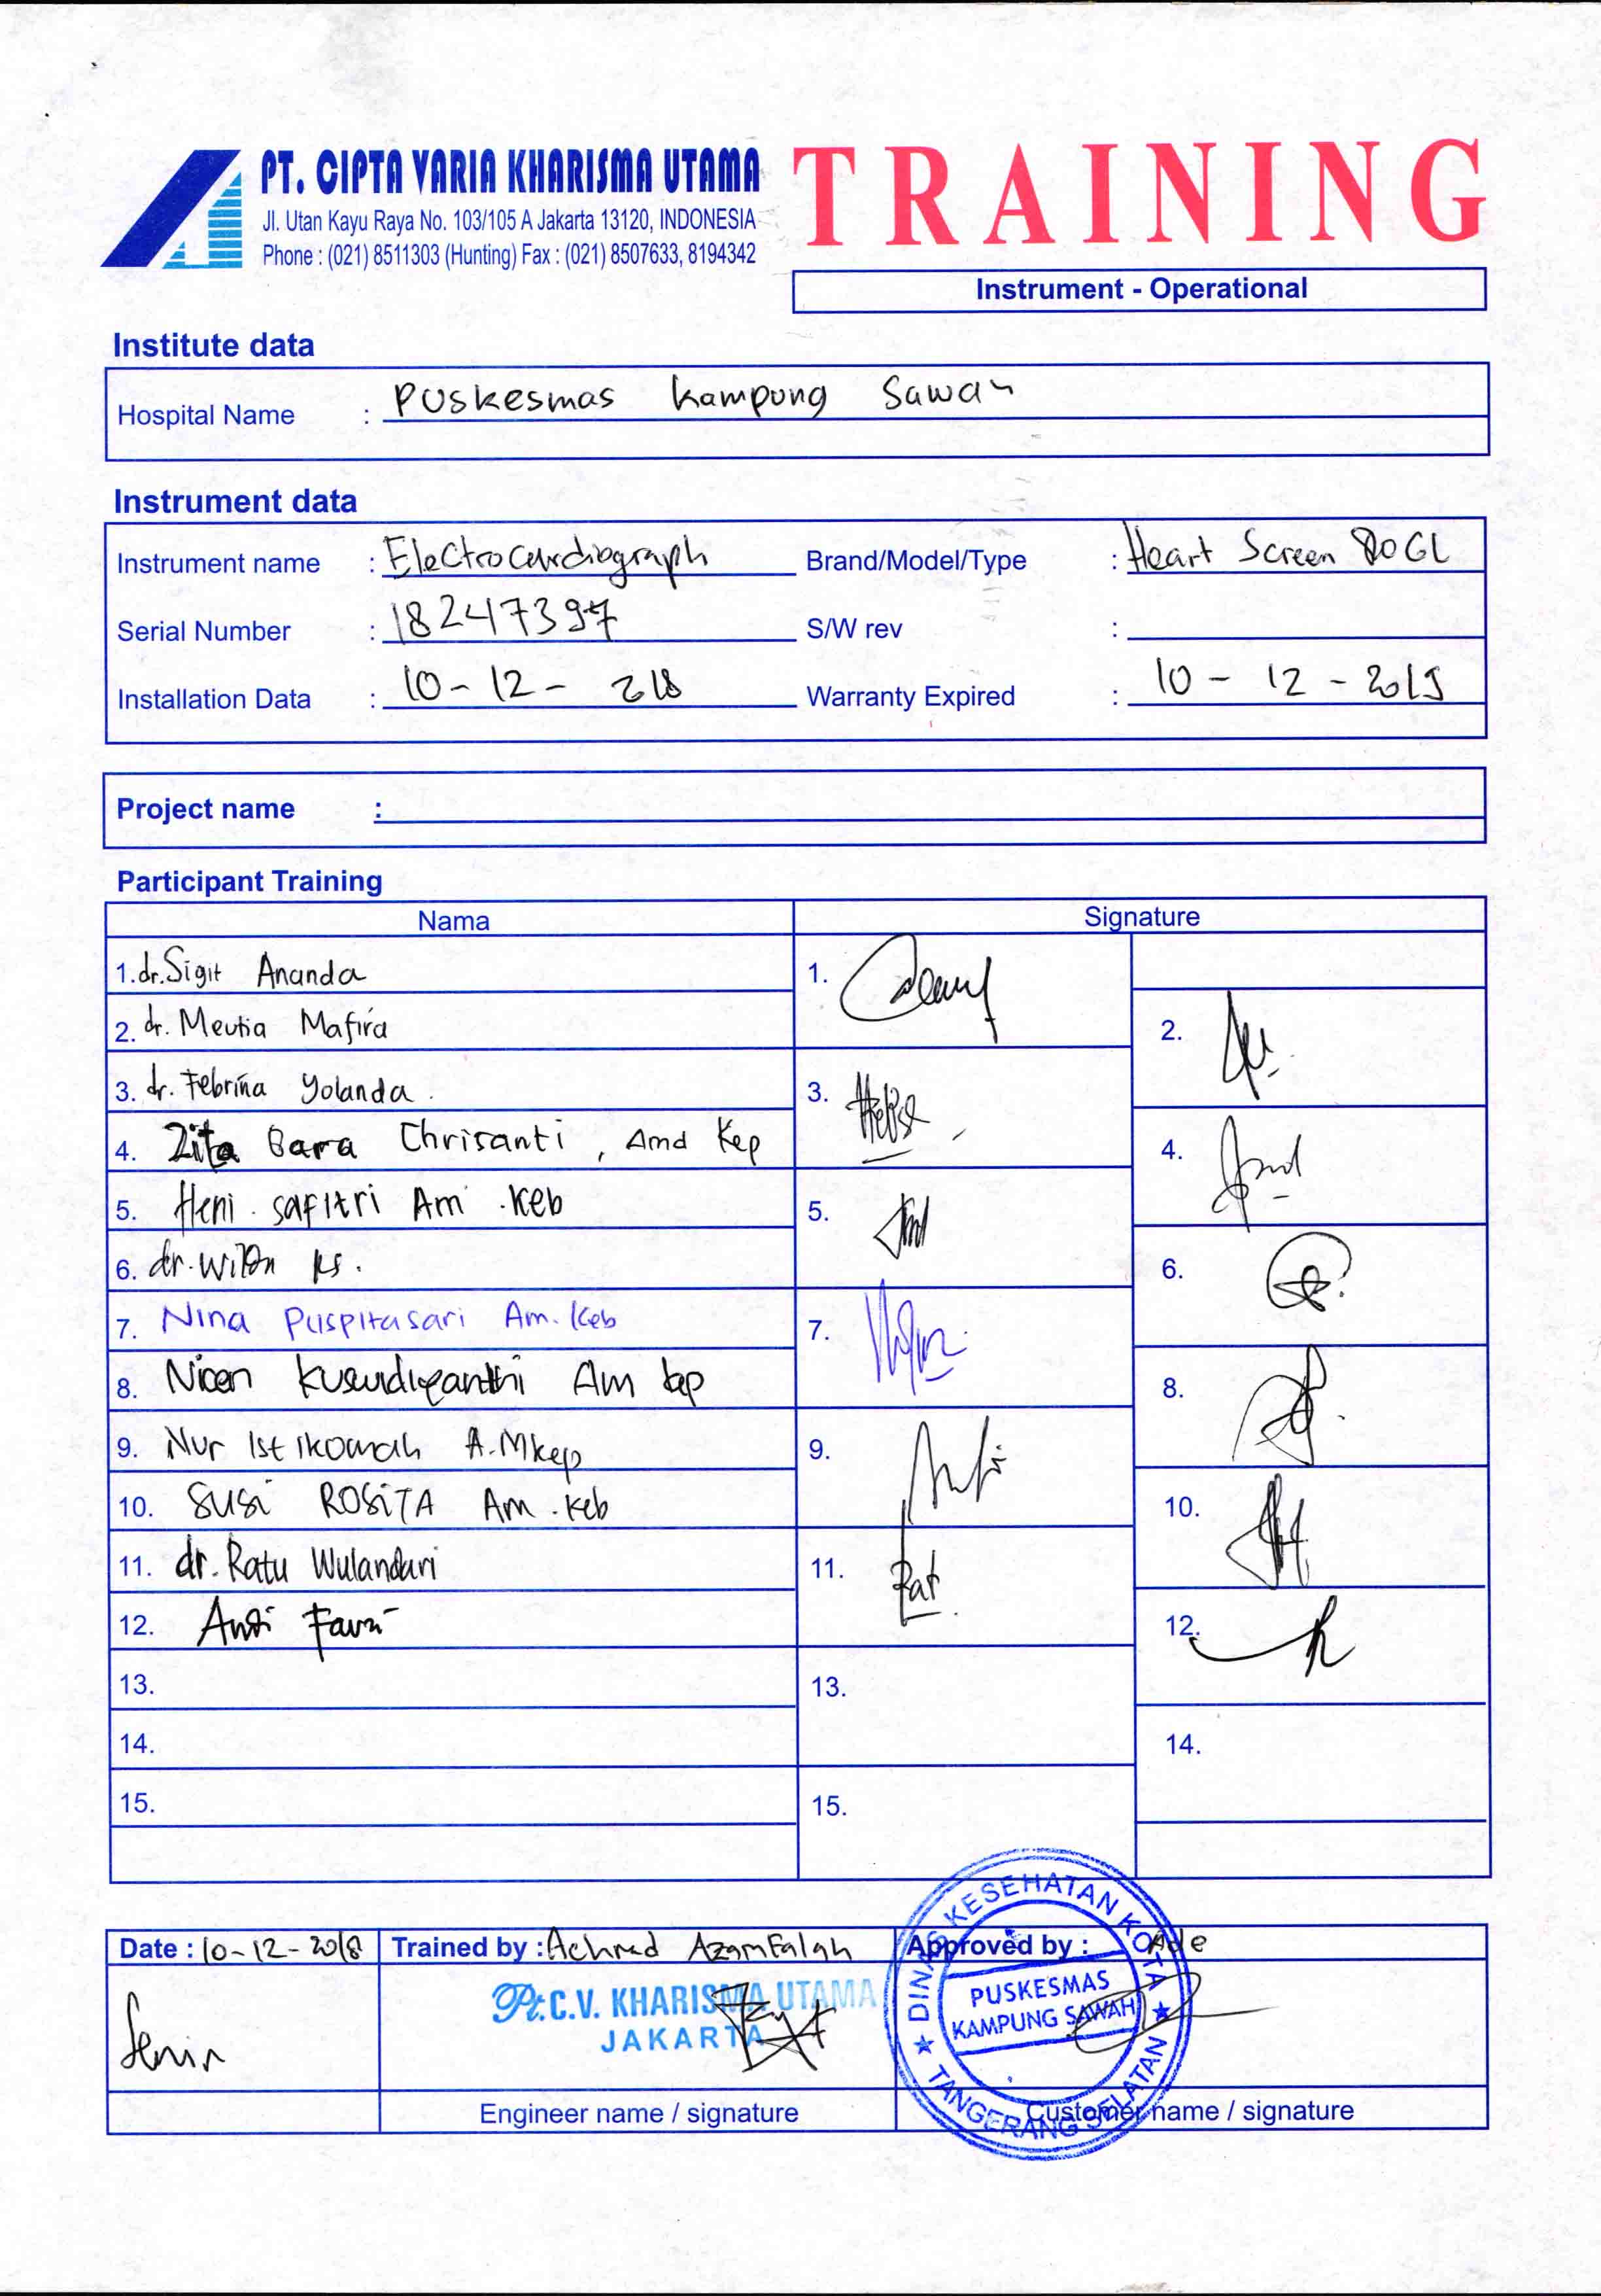 PT. CIPTA VARIA KHARISMA UTAMA
Jl. Utan Kayu Raya No. 103/105 A Jakarta 13120, INDONESIA
Phone : (021) 8511303 (Hunting) Fax : (021) 8507633, 8194342
TRAINING
Instrument - Operational
Institute data
Hospital Name : Puskesmas Kampung Sawah
Instrument data
Instrument name : Electrocardiograph Brand/Model/Type : Heart Screen
Serial Number : 18247397 S/W rev :
Installation Data : 10-12- 2018 Warranty Expired : 10 - 12 - 2019
Project name :
Participant Training
Nama Signature
1. dr. Sigit Ananda 1.
2. dr. Meutia Mafira 2.
3. dr. Febrina Yolanda. 3.
4. Zita Chrisanti, Amd Kep 4.
5. Heni Safitri Am.Keb 5.
6. dr. 6.
7. Nina Puspitasari Am. Keb 7.
8. Am Kep 8.
9. Nur Istikomah A.Mkep 9.
10. SUSi ROSiTA Am.Keb 10.
11. dr. Ratu Wulandari 11.
12. 12.
13. 13.
14. 14.
15. 15.
Date : 10-12-2018 Trained by : Achmad Azam Falah Approved by : Ade
Senin
Pt. C.V. KHARISMA UTAMA
JAKARTA
DINAS KESEHATAN KOTA
PUSKESMAS
KAMPUNG SAWAH
TANGERANG SELATAN
Engineer name / signature Customer name / signature